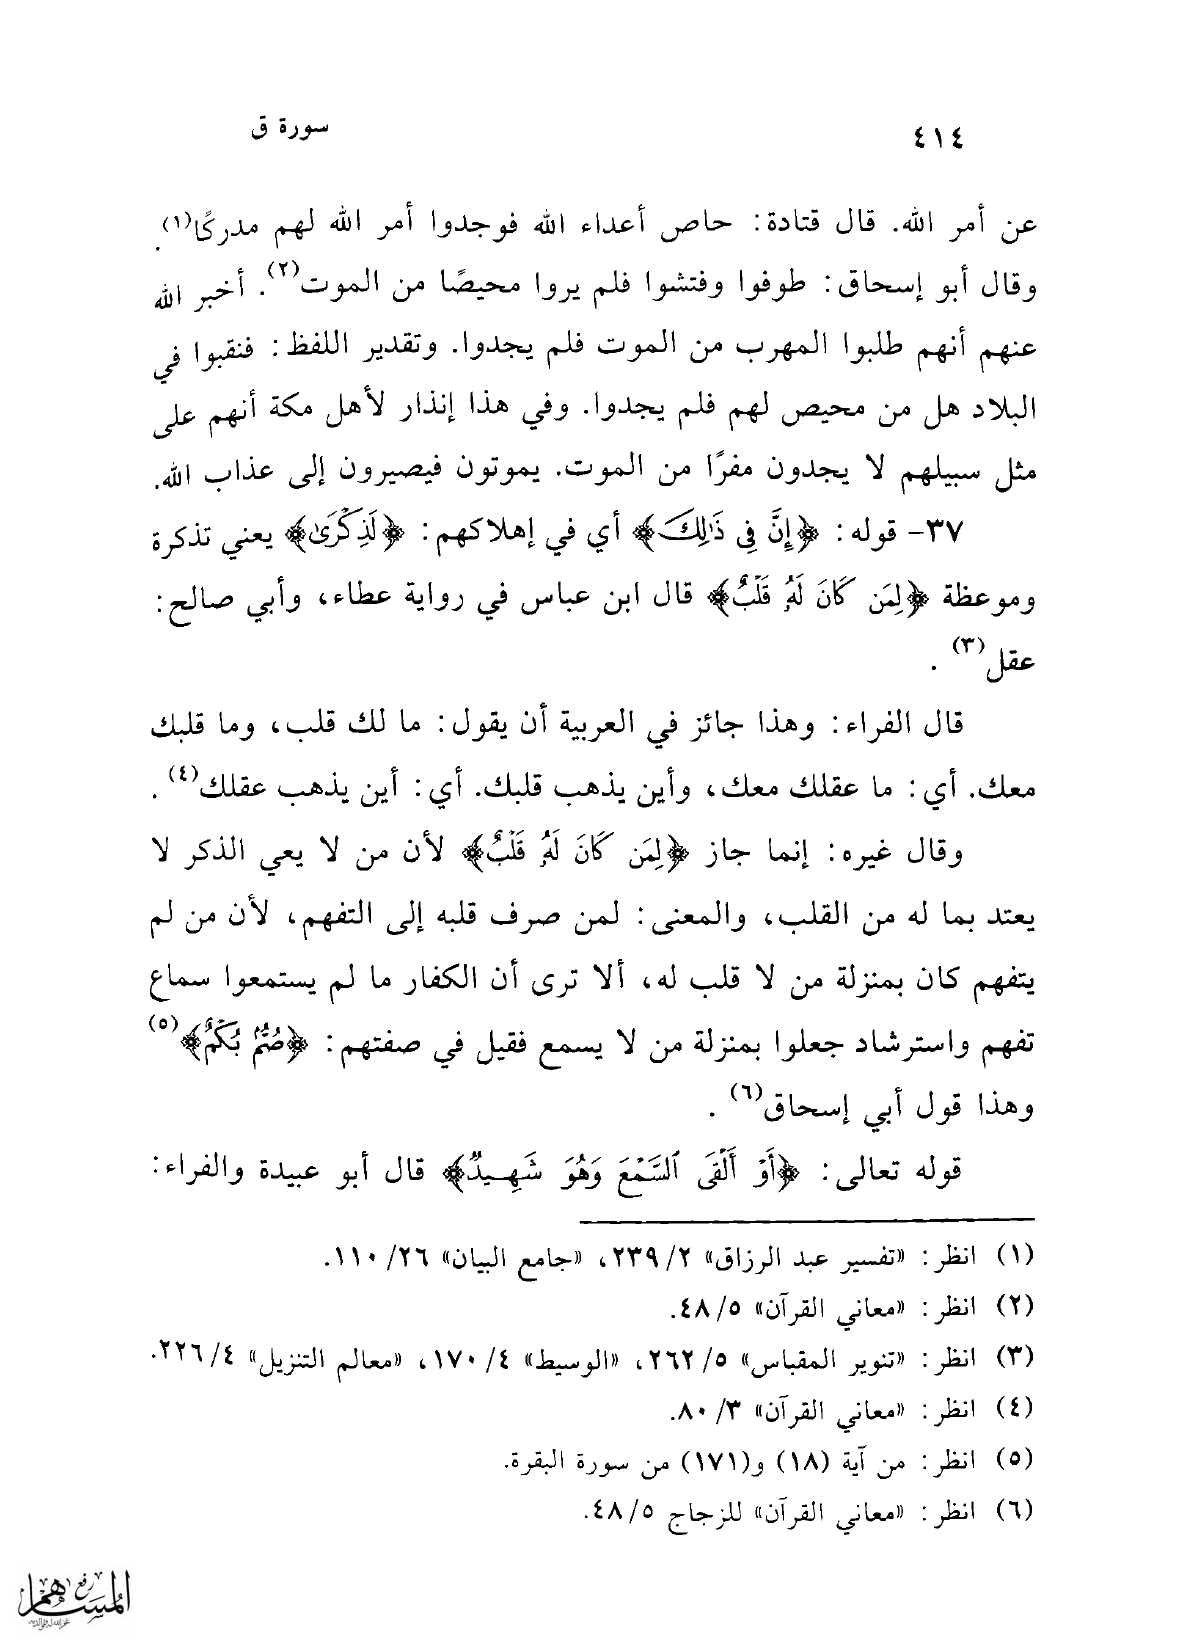 ٤١٤ سورة ق
عن أمر الله. قال قتادة: حاص أعداء الله فوجدوا أمر الله لهم مدركًا(١).
وقال أبو إسحاق: طوفوا وفتشوا فلم يروا محيصًا من الموت(٢). أخبر الله
عنهم أنهم طلبوا المهرب من الموت فلم يجدوا. وتقدير اللفظ: فنقبوا في
البلاد هل من محيص لهم فلم يجدوا. وفي هذا إنذار لأهل مكة أنهم على
مثل سبيلهم لا يجدون مفرًا من الموت. يموتون فيصيرون إلى عذاب الله.
٣٧- قوله: ﴿إِنَّ فِى ذَٰلِكَ﴾ أي في إهلاكهم: ﴿لَذِكْرَىٰ﴾ يعني تذكرة
وموعظة ﴿لِمَن كَانَ لَهُۥ قَلْبٌ﴾ قال ابن عباس في رواية عطاء، وأبي صالح:
عقل(٣) .
قال الفراء: وهذا جائز في العربية أن يقول: ما لك قلب، وما قلبك
معك. أي: ما عقلك معك، وأين يذهب قلبك. أي: أين يذهب عقلك(٤) .
وقال غيره: إنما جاز ﴿لِمَن كَانَ لَهُۥ قَلْبٌ﴾ لأن من لا يعي الذكر لا
يعتد بما له من القلب، والمعنى: لمن صرف قلبه إلى التفهم، لأن من لم
يتفهم كان بمنزلة من لا قلب له، ألا ترى أن الكفار ما لم يستمعوا سماع
تفهم واسترشاد جعلوا بمنزلة من لا يسمع فقيل في صفتهم: ﴿صُمٌّۢ بُكْمٌ﴾(٥)
وهذا قول أبي إسحاق(٦) .
قوله تعالى: ﴿أَوْ أَلْقَى ٱلسَّمْعَ وَهُوَ شَهِيدٌ﴾ قال أبو عبيدة والفراء:
(١) انظر: «تفسير عبد الرزاق» ٢/ ٢٣٩، «جامع البيان» ٢٦/ ١١٠.
(٢) انظر: «معاني القرآن» ٥/ ٤٨.
(٣) انظر: «تنوير المقباس» ٥/ ٢٦٢، «الوسيط» ٤/ ١٧٠، «معالم التنزيل» ٤/ ٢٢٦.
(٤) انظر: «معاني القرآن» ٣/ ٨٠.
(٥) انظر: من آية (١٨) و(١٧١) من سورة البقرة.
(٦) انظر: «معاني القرآن» للزجاج ٥/ ٤٨.
رفع
المساهم